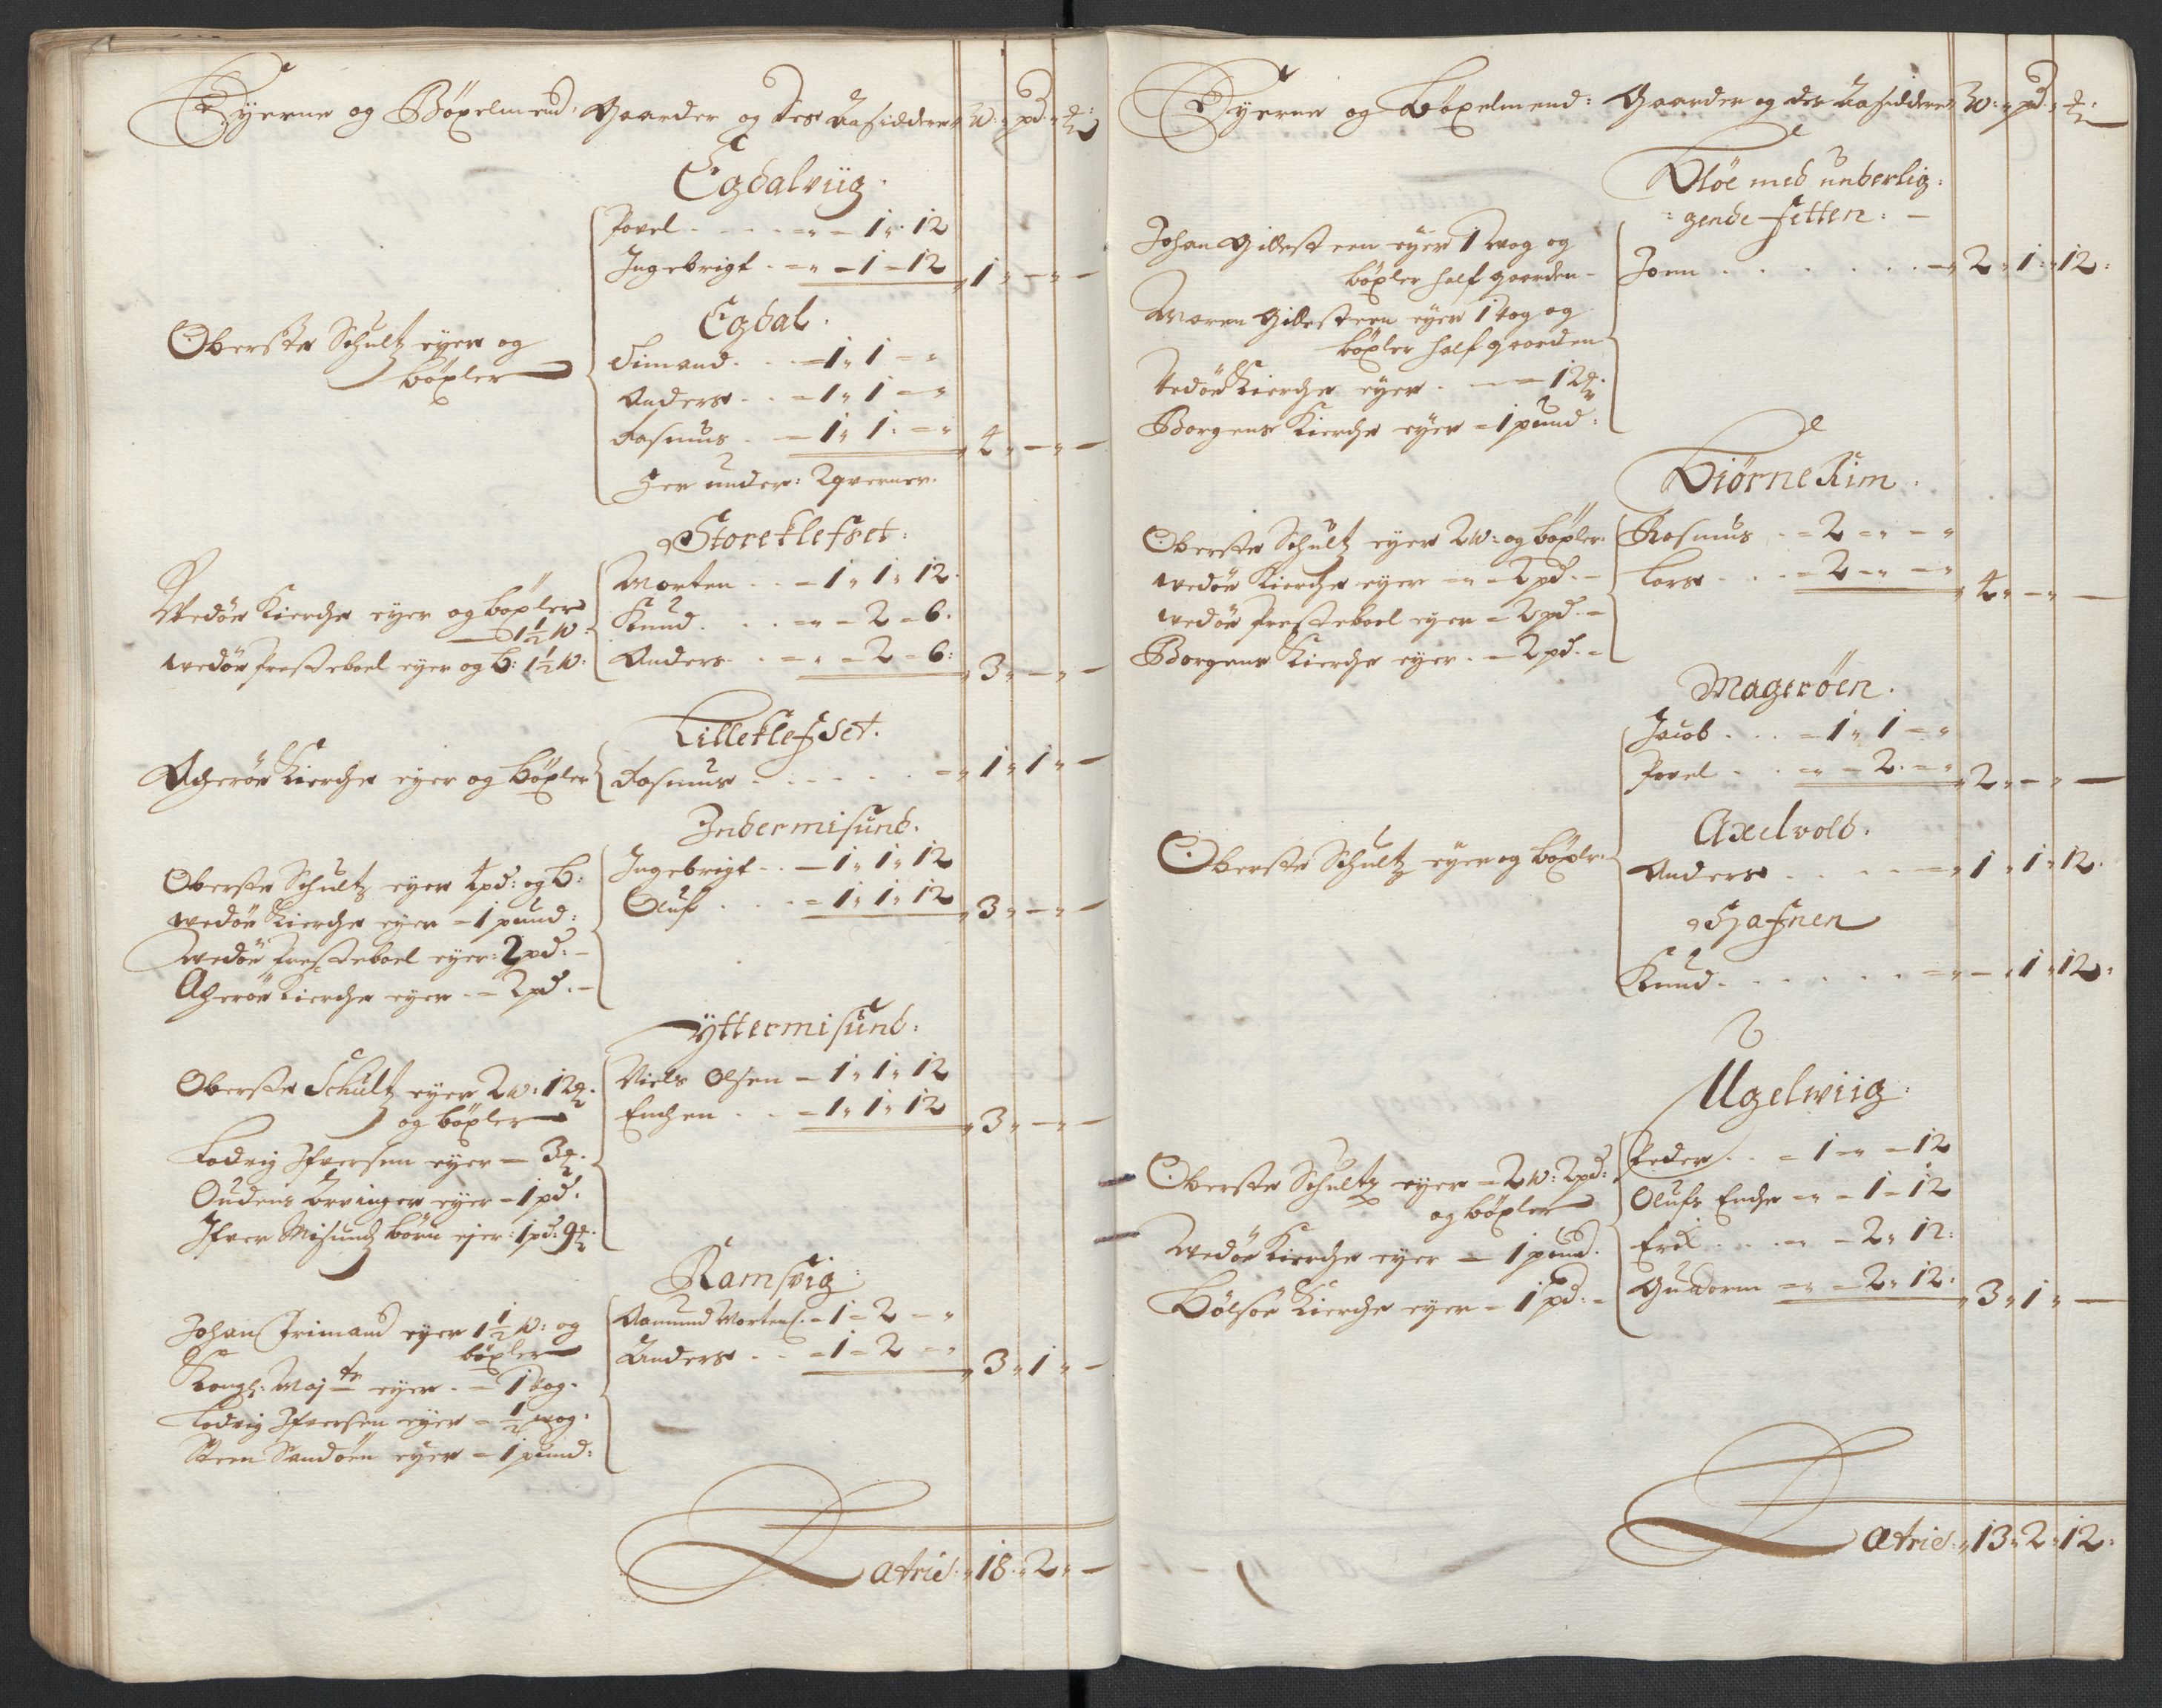 Eyerne og Böxelmend: Gaarder og des Aasiddere W: pd: ℔:
Egdalviig.
Povel - 1 - 12
Ingebrigt - 1 - 12 1 - -
Egdal.
Oberster Schultz eyer og
böxler
Simand - 1 - 1 -
Anders - 1 - 1 -
Rasmus - 1 - 1 - 4 - -
Her under: 2 qverner.
Storeklefset:
Wedöe Kierche eyer og böxler
1½ W:
Wedöe Presteboel eyer og B: 1½ W:
Morten - 1 - 1 - 12
Knud - 2 - 6
Anders - 2 - 6 3 - -
Lilleklefset.
Acheröe Kierche eyer og böxler Rasmus 1 - 1 -
Indermisund.
Oberste Schultz eyer 4 pd: og B:
Wedöe Kierche eyer - 1 pund:
Wedöe Presteboel eyer: 2 pd:
Acheröe Kierche eyer - 2 pd.
Ingebrigt - 1 - 1 - 12
Oluf - 1 - 1 - 12 3 - -
Yttermisund:
Oberste Schultz eyer 2 W: 12 ℔.
og böxler
Lodvig Ifversen eyer - 3 ℔.
Oudens Arvinger eyer - 1 pd.
Ifver Misunds börn ejer: 1 pd: 9 ℔.
Niels Olsen - 1 - 1 - 12
Enchen - 1 - 1 - 12 3 - -
Ramsvig:
Johan Frimand eyer 1½ W: og
böxler
Kongl: Maj:tr eyer - 1 Wog.
Lodvig Ifversen eyer - ½ Wog.
Steen Sandöen eyer - 1 pund:
Aamund Mortens. - 1 - 2 -
Anders - 1 - 2 - 3 - 1 -
Latris 18 - 2 -
Eyerne og Böxelmend: Gaarder og des Aasiddere W: pd: ℔:
Flöe med underlig:
gende Setten:
Johan Gildesteen eyer 1 Wog og
böxler half gaarden
Maren Gildesteen eyer 1 Wog og
böxler half gaarden
Wedöe Kierche eyer - 12 ℔
Borgens Kierche eyer - 1 pund:
Joen 2 - 1 - 12
Biörnerim.
Oberste Schultz eyer 2 W: og böxler.
Wedöe Kierche eyer - 2 pd.
Wedöe Presteboel eyer - 2 pd.
Borgens Kierche eyer - 2 pd.
Rasmus - 2 - -
Lars - 2 - - 4 - -
Mageröen.
Jacob - 1 - 1 -
Povel - 2 - 2 - -
Axelvold.
Oberste Schultz eyer og böxler
Anders 1 - 1 - 12
Hafnen
Knud - 1 - 12
Ugelwiig:
Oberste Schultz eyer - 2 W: 2 pd:
og böxler
Wedöe Kierche eyer - 1 pund.
Bolsöe Kierche eyer - 1 pd:
Peder - 1 - - 12
Olufs Enche - 1 - 12
Erik - 2 - 12
Gudorm - 2 - 12 3 - 1 -
Latris 13 - 2 - 12